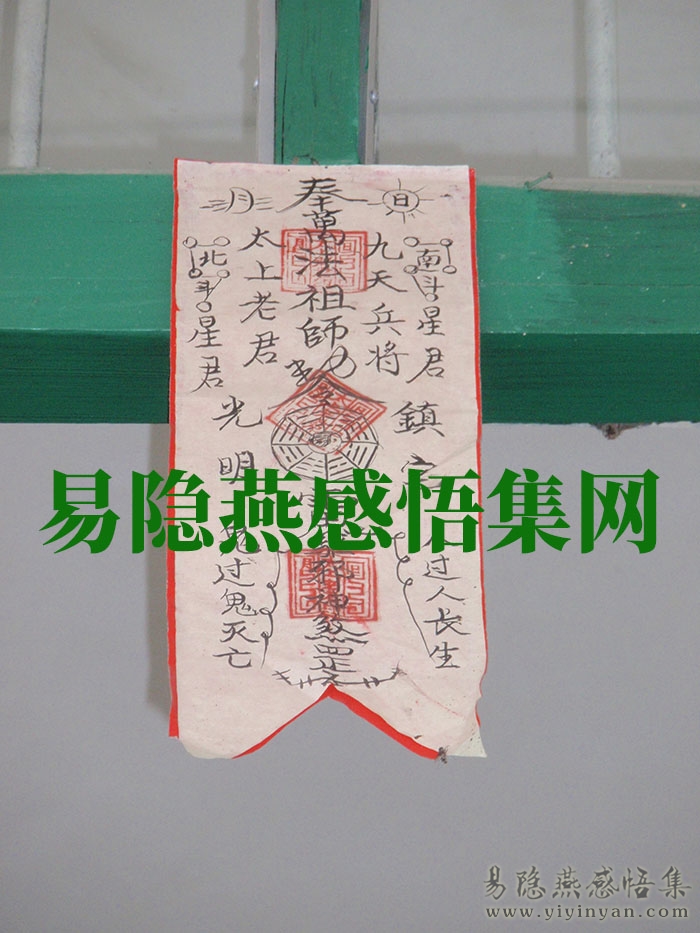 月 日
奉萬法祖師
九天兵将
太上老君
南斗星君
北斗星君
鎮
过人长生
光明
鬼过鬼灭亡
邪神煞罡
易隐燕感悟集网
易隐燕感悟集
www.yiyinyan.com